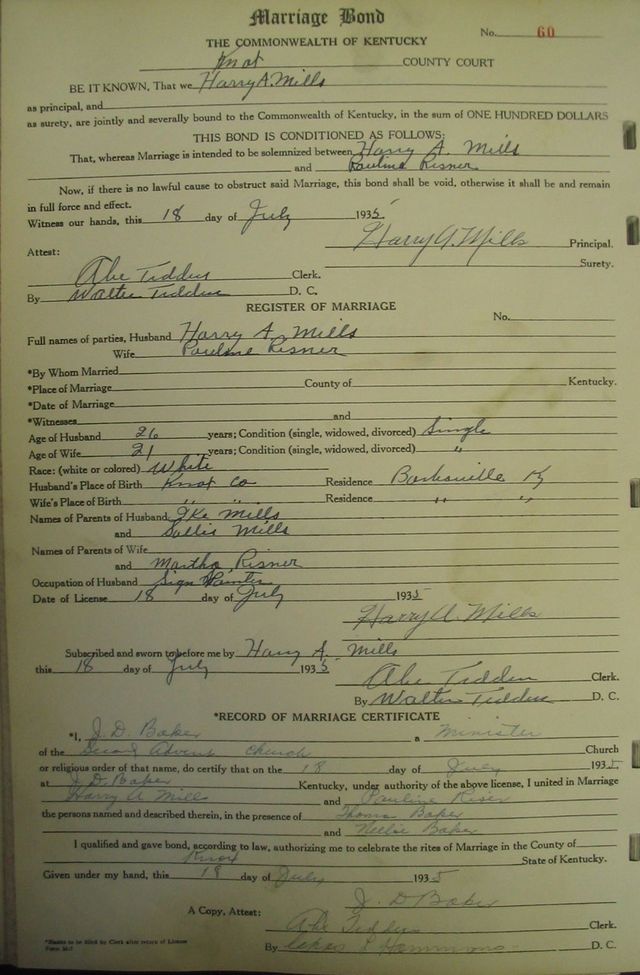 Marriage Bond
No. 60
THE COMMONWEALTH OF KENTUCKY
Knot COUNTY COURT
BE IT KNOWN, That we Harry A. Mills
as principal, and
as surety, are jointly and severally bound to the Commonwealth of Kentucky, in the sum of ONE HUNDRED DOLLARS
THIS BOND IS CONDITIONED AS FOLLOWS:
That, whereas Marriage is intended to be solemnized between Harry A. Mills
and Pauline Risner
Now, if there is no lawful cause to obstruct said Marriage, this bond shall be void, otherwise it shall be and remain
in full force and effect.
Witness our hands, this 18 day of July 1935
Harry A. Mills Principal.
Attest: Surety.
Abe Tedders Clerk.
By Walter Tedders D. C.
REGISTER OF MARRIAGE
No.
Full names of parties, Husband Harry A. Mills
Wife Pauline Risner
*By Whom Married
*Place of Marriage County of Kentucky.
*Date of Marriage
*Witnesses and
Age of Husband 26 years; Condition (single, widowed, divorced) Single
Age of Wife 21 years; Condition (single, widowed, divorced) "
Race: (white or colored) White
Husband's Place of Birth Knox Co Residence Barbourville Ky
Wife's Place of Birth " " Residence " "
Names of Parents of Husband Ike Mills
and Sallie Mills
Names of Parents of Wife
and Martha Risner
Occupation of Husband Sign Painter
Date of License 18 day of July 1935
Harry A. Mills
Subscribed and sworn to before me by Harry A. Mills
this 18 day of July 1935
Abe Tedders Clerk.
By Walter Tedders D. C.
*RECORD OF MARRIAGE CERTIFICATE
*I, J. D. Baker a Minister
of the Second Advent Church Church
or religious order of that name, do certify that on the 18 day of July 1935
at J. D. Baker Kentucky, under authority of the above license, I united in Marriage
Harry A Mills and Pauline Riser
the persons named and described therein, in the presence of Thomas Baker
and Nellie Baker
I qualified and gave bond, according to law, authorizing me to celebrate the rites of Marriage in the County of
Knox State of Kentucky.
Given under my hand, this 18 day of July 1935
J. D Baker
A Copy, Attest: Abe Tedders Clerk.
By L Hammons D. C.
*Blanks to be filled by Clerk after return of License